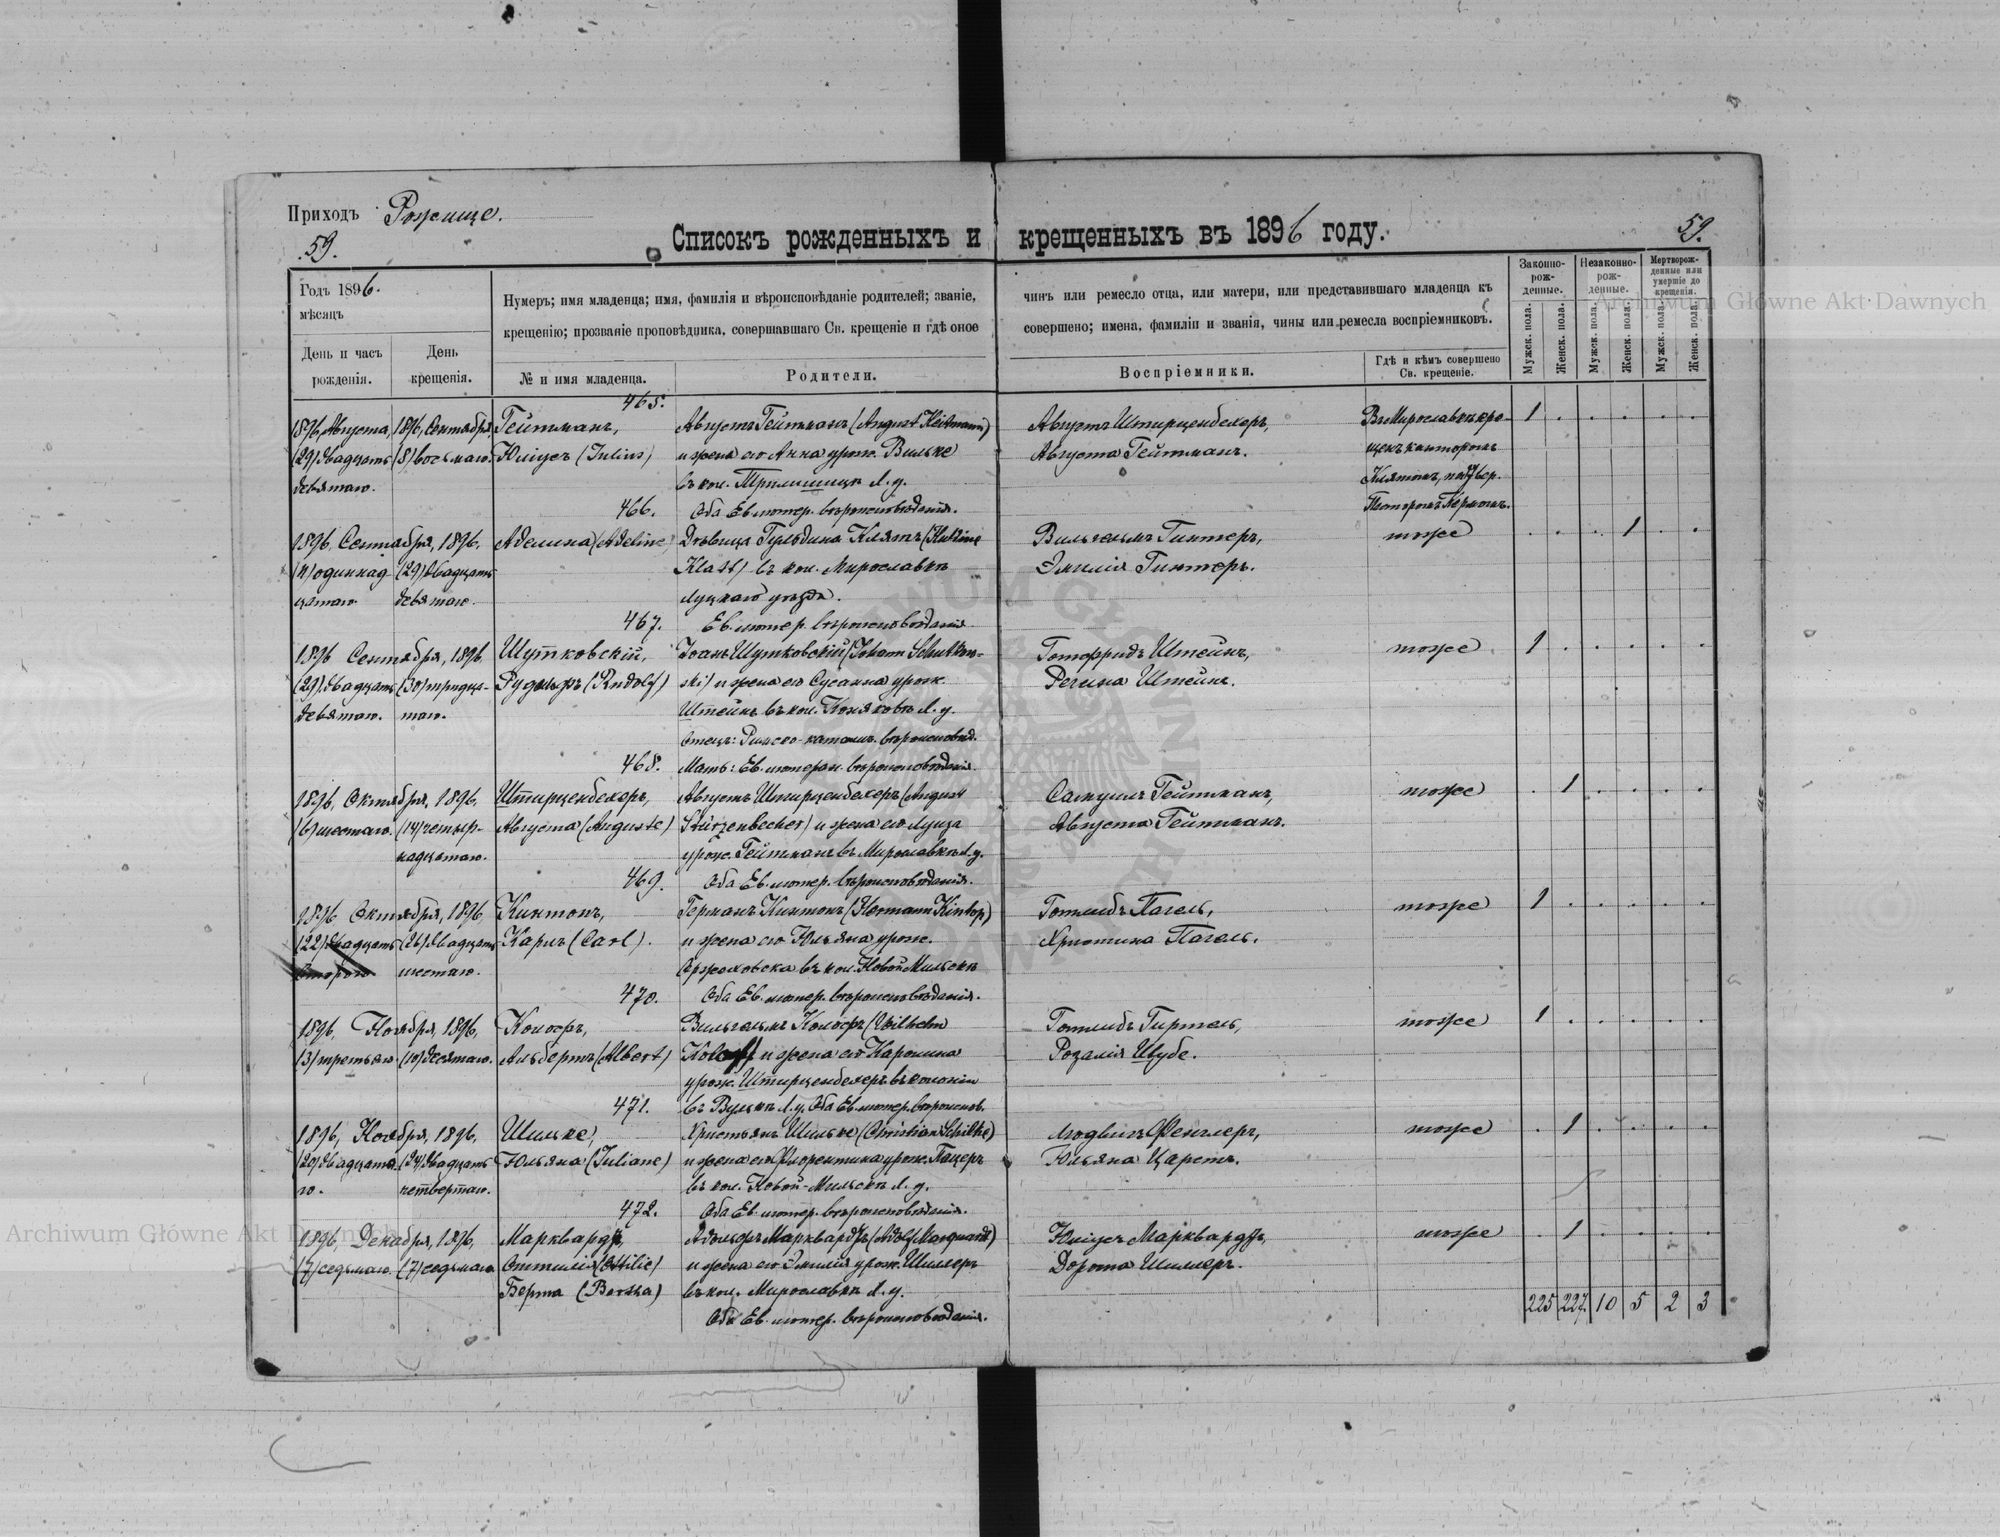 Приходъ Рожище.
59.
59.
Списокъ рожденныхъ и крещенныхъ въ 1896 году.
Годъ 1896.
мѣсяцъ
День и часъ рожденія.
День крещенія.
Нумеръ; имя младенца; имя, фамилія и вѣроисповѣданіе родителей; званіе, чинъ или ремесло отца, или матери, или представившаго младенца къ
крещенію; прозваніе проповѣдника, совершавшаго Св. крещеніе и гдѣ оное совершено; имена, фамиліи и званія, чины или ремесла воспріемниковъ.
№ и имя младенца.
Родители.
Воспріемники.
Гдѣ и кѣмъ совершено
Св. крещеніе.
Законно-
рож-
денные.
Незаконно-
рож-
денные.
Мертворож-
денные или
умершіе до
крещенія.
Мужск. пола.
Женск. пола.
Мужск. пола.
Женск. пола.
Мужск. пола.
Женск. пола.
465.
1896, Августа,
(29) двадцать
девятаго.
1896, Сентября,
(8) восьмаго.
Гейтманъ,
Юліусъ (Julius)
Августъ Гейтманъ (August Heitmann)
и жена его Анна урож. Вильке
въ кол. Л. у.
Оба Ев. лютер. вѣроисповѣданія.
Августъ Штирценбехеръ,
Августа Гейтманъ.
Въ Мирославкѣ кре-
щенъ канторомъ
Клятомъ, подтвер.
Пасторомъ Керномъ.
1
466.
1896, Сентября, 1896.
(11) одиннад-
цатаго
(29) двадцать
девятаго.
Аделина (Adeline)
Дѣвица Гульдина Клятъ (Huldine
Klatt) въ кол. Мирославкѣ
Луцкаго уѣзда.
Ев. лютер. вѣроисповѣданія
Вильгельмъ Гинтеръ,
Эмилія Гинтеръ.
тоже
1
467.
1896 Сентября, 1896.
(29) двадцать
девятаго.
(30) тридца-
таго.
Шутковскій,
Рудольфъ (Rudolf)
Іоанъ Шутковскій (Johann Schutkow-
ski) и жена его Сусанна урож.
Штейнъ въ кол. Коняковъ Л. у.
Отецъ: Римско-католич. вѣроисповѣд.
Мать: Ев. лютеран. вѣроисповѣданія.
Готфридъ Штейнъ,
Регина Штейнъ.
тоже
1
468.
1896, Октября, 1896.
(6) шестаго.
(14) четыр-
надцатаго.
Штирценбехеръ,
Августа (Auguste)
Августъ Штирценбехеръ (August
Stürzenbecher) и жена его Луиза
урож. Гейтманъ въ Мирославкѣ Л. у.
Оба Ев. лютер. вѣроисповѣданія.
Самуилъ Гейтманъ,
Августа Гейтманъ.
тоже
1
469.
1896 Октября, 1896
(22) двадцать
втораго
(26) двадцать
шестаго.
Кинтопъ,
Карлъ (Carl).
Германъ Кинтопъ (Hermann Kintop)
и жена его Юльяна урож.
въ кол. Новой Мильскѣ
Оба Ев. лютер. вѣроисповѣданія.
Готлибъ Пагель,
Христина Пагель.
тоже
1
470.
1896, Ноября, 1896,
(3) третьяго
(10) десятаго.
Колофъ,
Альбертъ (Albert)
Вильгельмъ Колофъ (Wilhelm
Koloff) и жена его Каролина
урож. Штирценбехеръ въ колоніи
въ Л. у. Оба Ев. лютер. вѣроиспов.
Готлибъ Гиртель,
Розалія Шубе.
тоже
1
471.
1896, Ноября, 1896.
(20) двадцата-
го.
(24) двадцать
четвертаго.
Шильке,
Юльяна (Juliane)
Христьянъ Шильке (Christian Schilke)
и жена его Флорентина урож. Пацеръ
въ кол. Новой-Мильскѣ Л. у.
Оба Ев. лютер. вѣроисповѣданія.
Людвигъ Фенглеръ,
Юльяна Царетъ.
тоже
1
472.
1896, Декабря, 1896,
(7) седьмаго.
(7) седьмаго
Марквардъ,
Оттилія (Ottilie)
Берта (Bertha)
Адольфъ Марквардъ (Adolf Marquardt)
и жена его Эмилія урож. Шиллеръ
въ кол. Мирославкѣ Л. у.
Оба Ев. лютер. вѣроисповѣданія.
Юліусъ Марквардъ,
Дорота Шиллеръ.
тоже
1
225 227 10 5 2 3
Archiwum Główne Akt Dawnych
Archiwum Główne Akt Dawnych